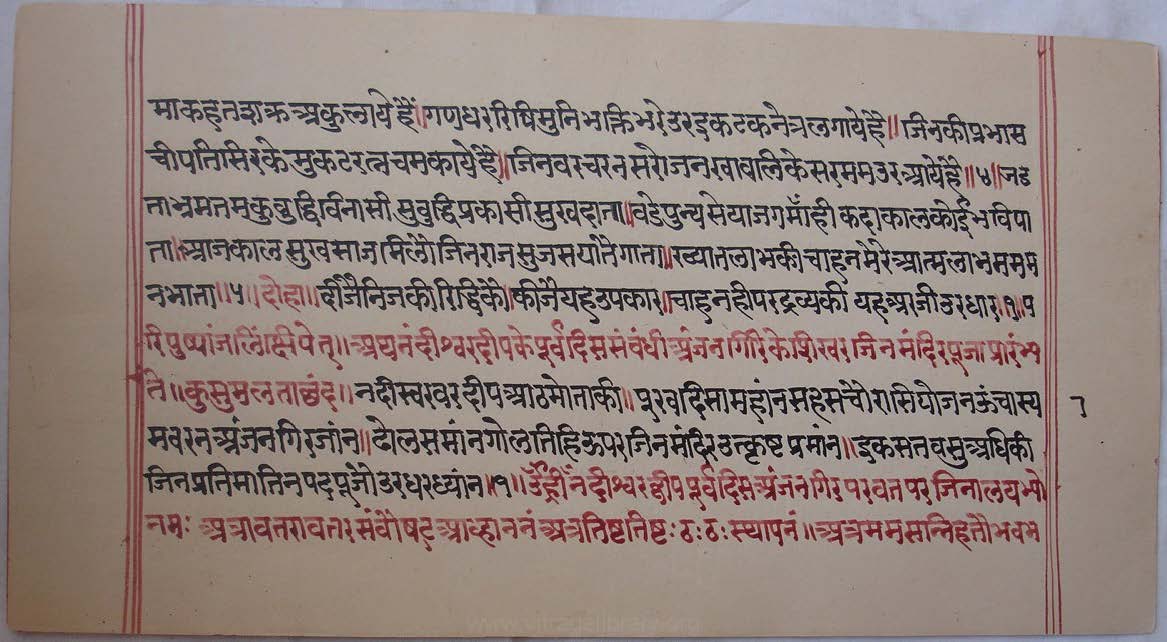 माकहतशक्रअकुलाये हैं॥गणधररिषिमुनिभक्तिभरेउरइकटकनेत्रलगायेहै॥ जिनकीप्रभास
चीपतिसिरकेमुकटरत्नचमकायेहै॥जिनवरचरनसरोजनखावलिकेसरममउरआयेहै॥४॥जड
ताभ्रमतमकुबुद्धिविनासीसुबुद्धिप्रकासीसुखदाता॥वडेपुन्यसेयाजगमाँहीकदाकालकोईभविपा
ता॥आजकालसुखसाजमिलोजिनराजसुजसयातेगाता॥ख्यातलाभकीचाहनमेरेआत्मलाभममम
नभाता॥५॥दोहा॥दीजैनिजकीरिद्धिकौ॥कीजैयहउपकार॥चाहनहीपरद्रव्यकी यहअरजीउरधार॥१॥प
रिपुष्पांजलिंक्षिपेत्॥अथनंदीश्वरदीपकेपूर्वदिससंबंधीअंजनगिरिकेशिखरजिनमंदिरपूजाप्रारंभ्य
ते॥कुसुमलताछंद॥नदीस्वरवरदीपआठमोताकी॥पूरवदिसामहांनसहसचौरासियोजनऊंचास्य
मवरनअंजनगिरजांन॥ढोलसमांनगोलतिहिऊपरजिनमंदिरउत्कृष्टप्रमांन॥इकसतवसुअधिकी
जिनप्रतिमातिनपदपूजोउरधरध्यांन॥१॥ॐह्रींनंदीश्वरद्वीपपूर्वदिसअंजनगिरपरवतपरजिनालयभो
नमः अत्रावतरावतरसंवौषट्आव्हाननंअत्रतिष्टतिष्टःठःठःस्थापनं॥अत्रममसन्निहतोभवभ
7
www.vitragelibrary.org